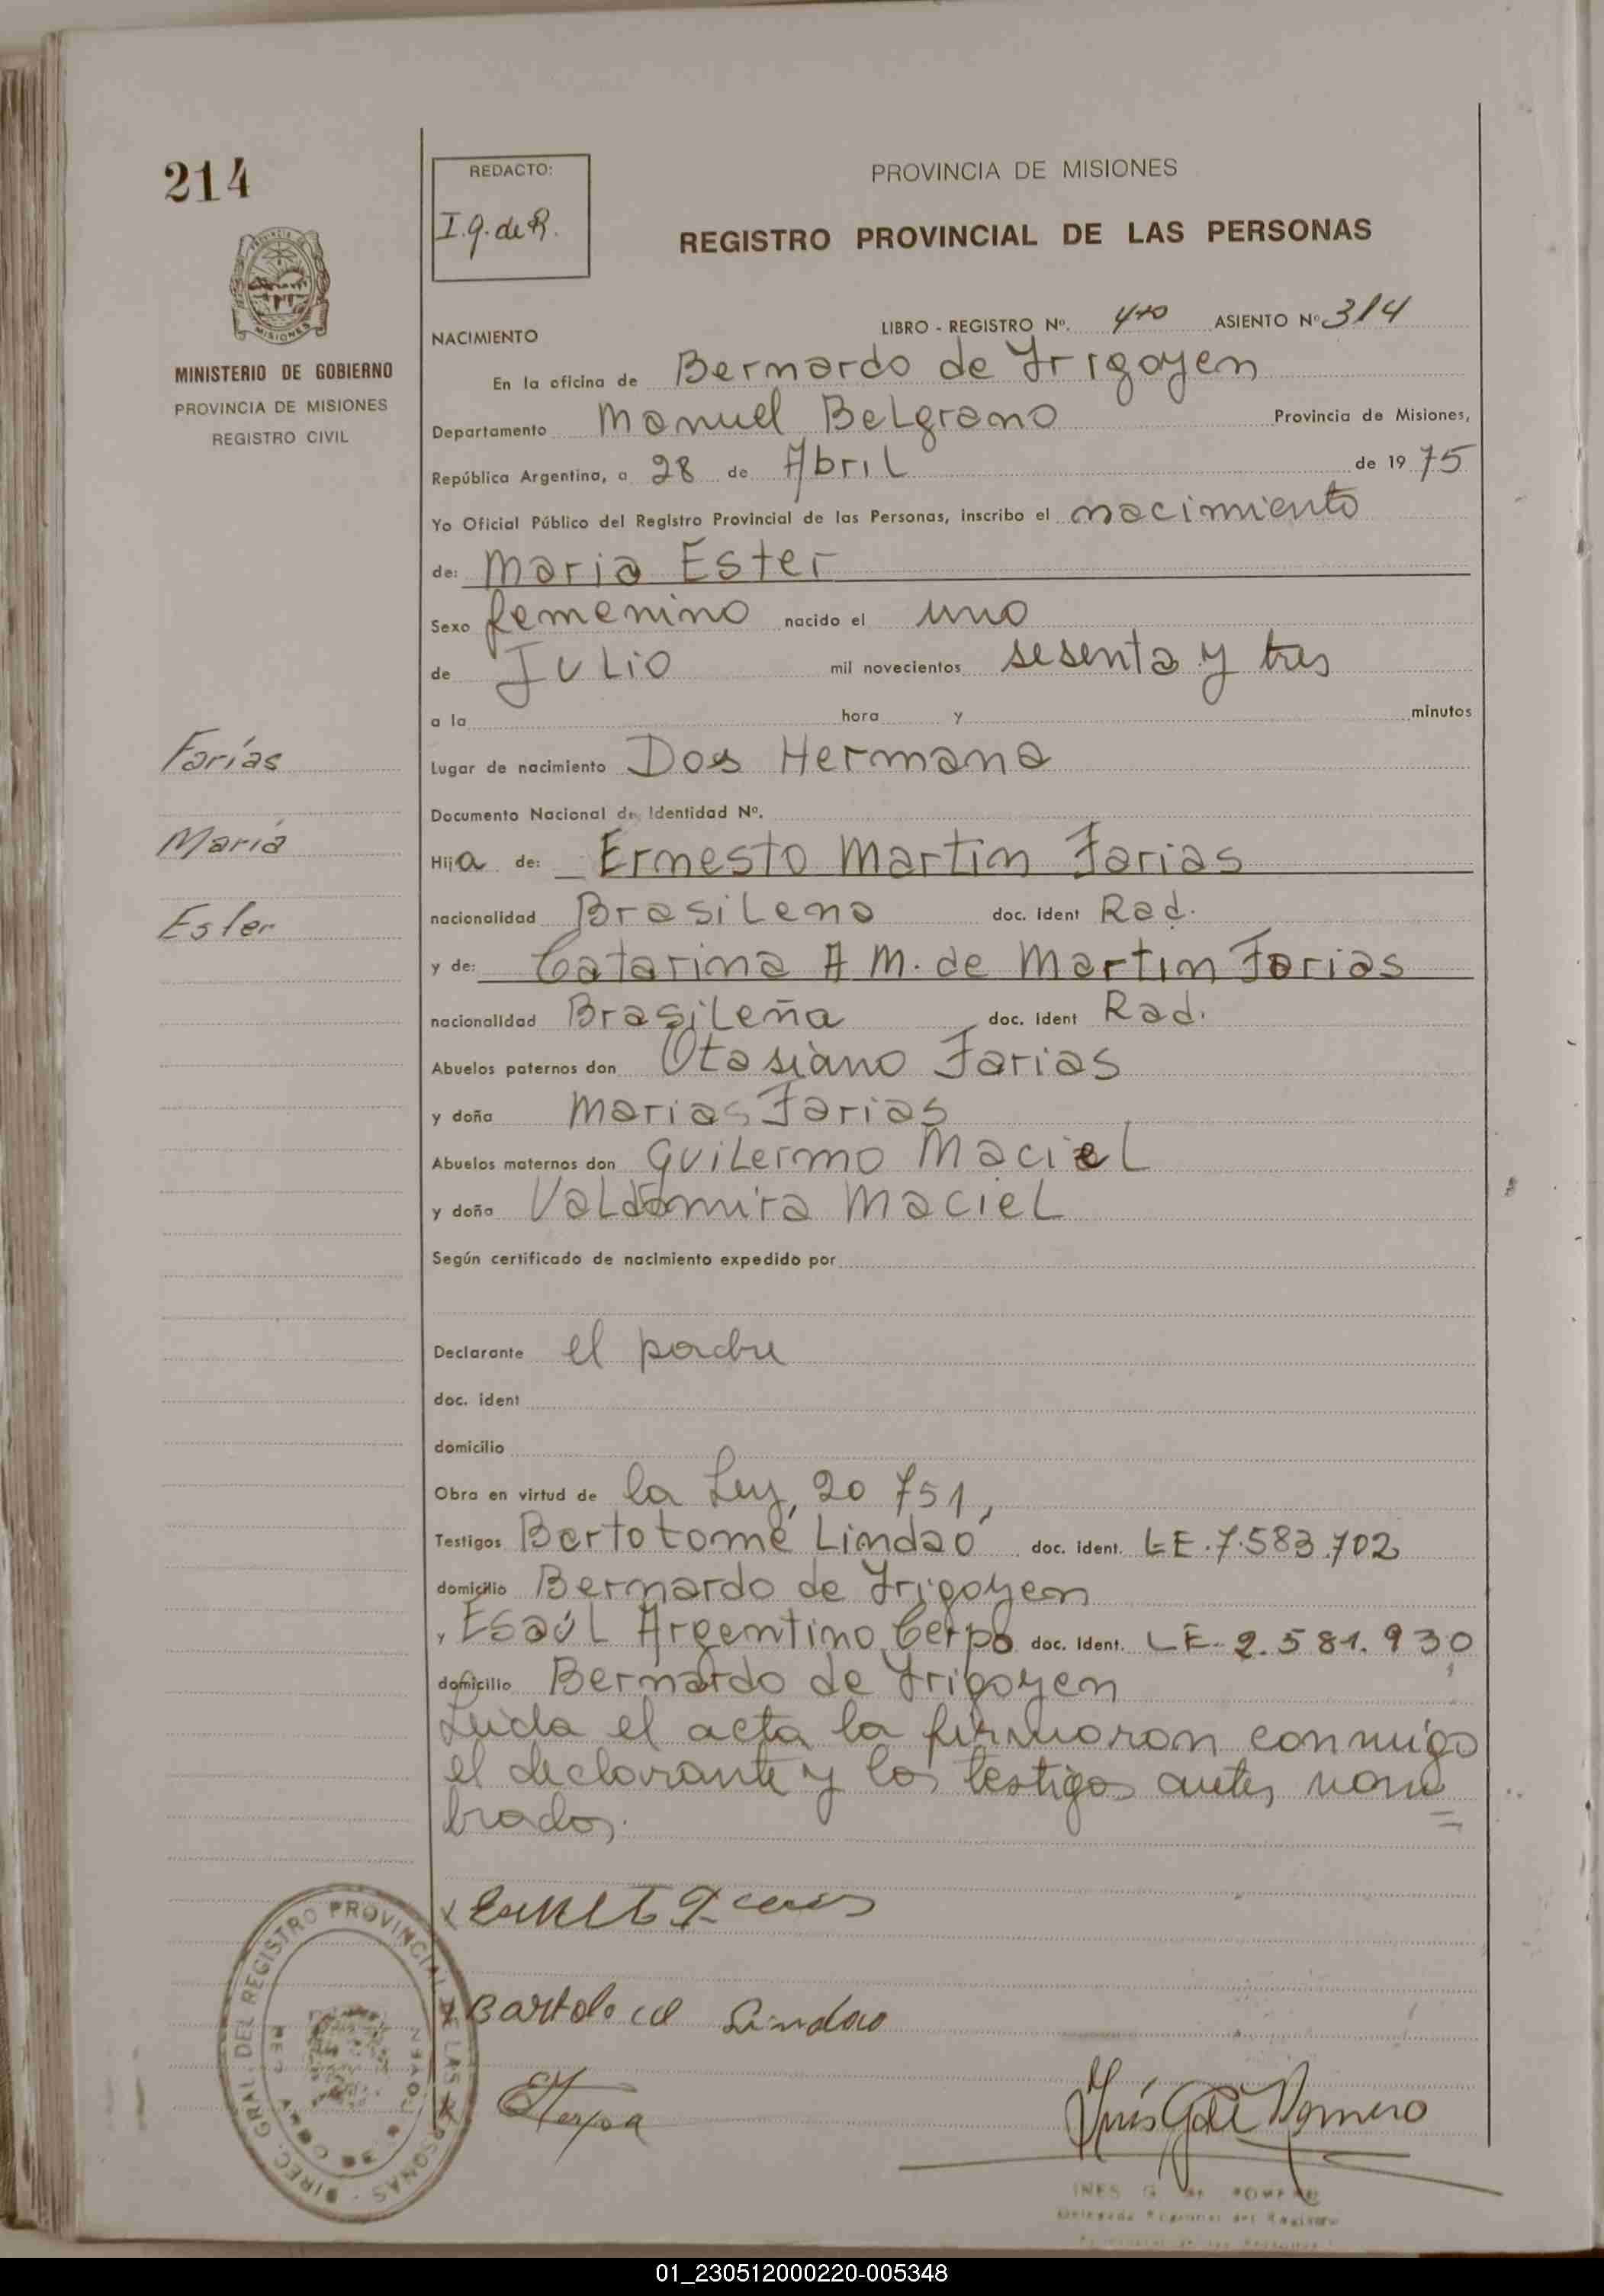 214
REDACTO:
I.g. de R.
PROVINCIA DE MISIONES
REGISTRO PROVINCIAL DE LAS PERSONAS
MISIONES
MINISTERIO DE GOBIERNO
PROVINCIA DE MISIONES
REGISTRO CIVIL
NACIMIENTO
LIBRO - REGISTRO Nº. 410 ASIENTO Nº 314
En la oficina de Bernardo de Yrigoyen
Departamento Manuel Belgrano Provincia de Misiones,
República Argentina, a 28 de Abril de 1975
Yo Oficial Público del Registro Provincial de las Personas, inscribo el nacimiento
de: Maria Ester
Sexo femenino nacido el uno
de Julio mil novecientos sesenta y tres
a la hora y minutos
Farías
Lugar de nacimiento Dos Hermana
Documento Nacional de Identidad Nº.
María
Hija de: Ernesto Martin Farias
Ester
nacionalidad Brasileno doc. Ident Rad.
y de: Catarina A M. de Martin Farias
nacionalidad Brasileña doc. Ident Rad.
Abuelos paternos don Otasiano Farias
y doña Marias Farias
Abuelos maternos don Guilermo Maciel
y doña Valdomira Maciel
Según certificado de nacimiento expedido por
Declarante el padre
doc. ident
domicilio
Obra en virtud de la Ley, 20 751,
Testigos Bertotomé Lindao doc. ident. LE. 7.583.702
domicilio Bernardo de Yrigoyen
y Esaúl Argentino Cerpa doc. Ident. LE. 2.581.930
domicilio Bernardo de Yrigoyen
Leida el acta la firmaron conmigo
el declarante y los testigos antes nom
brados.
DIREC. GRAL. DEL REGISTRO PROVINCIAL DE LAS PERSONAS
Lindao
Inés G de Romero
INES G. de ROMERO
Delegada Regional del Registro
01_230512000220-005348